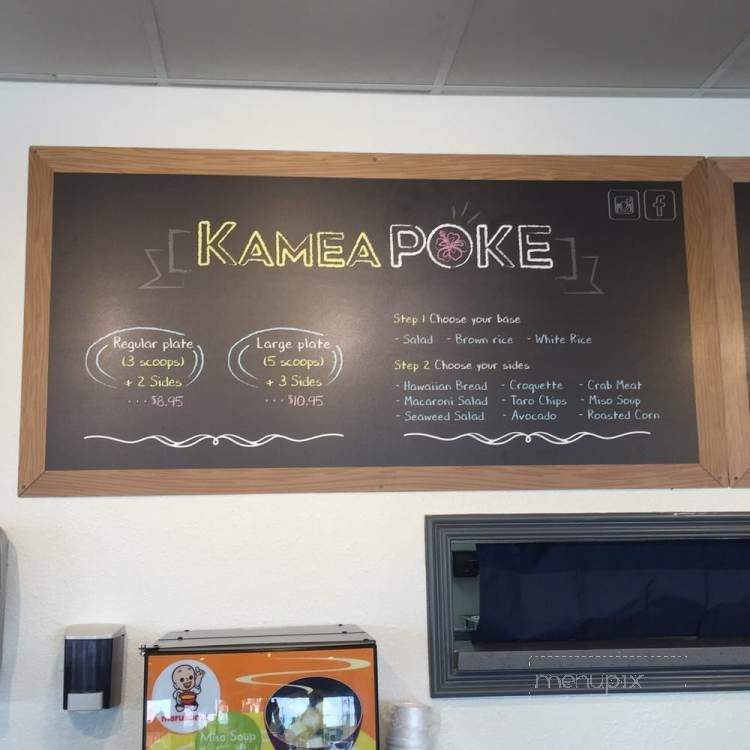 KAMEA POKE
Regular plate
(3 scoops)
+ 2 Sides
... $8.95
Large plate
(5 scoops)
+ 3 Sides
... $10.95
Step 1 Choose your base
- Salad - Brown rice - White Rice
Step 2 Choose your sides
- Hawaiian Bread - Croquette - Crab Meat
- Macaroni Salad - Taro Chips - Miso Soup
- Seaweed Salad - Avocado - Roasted Corn
Miso Soup
menupix